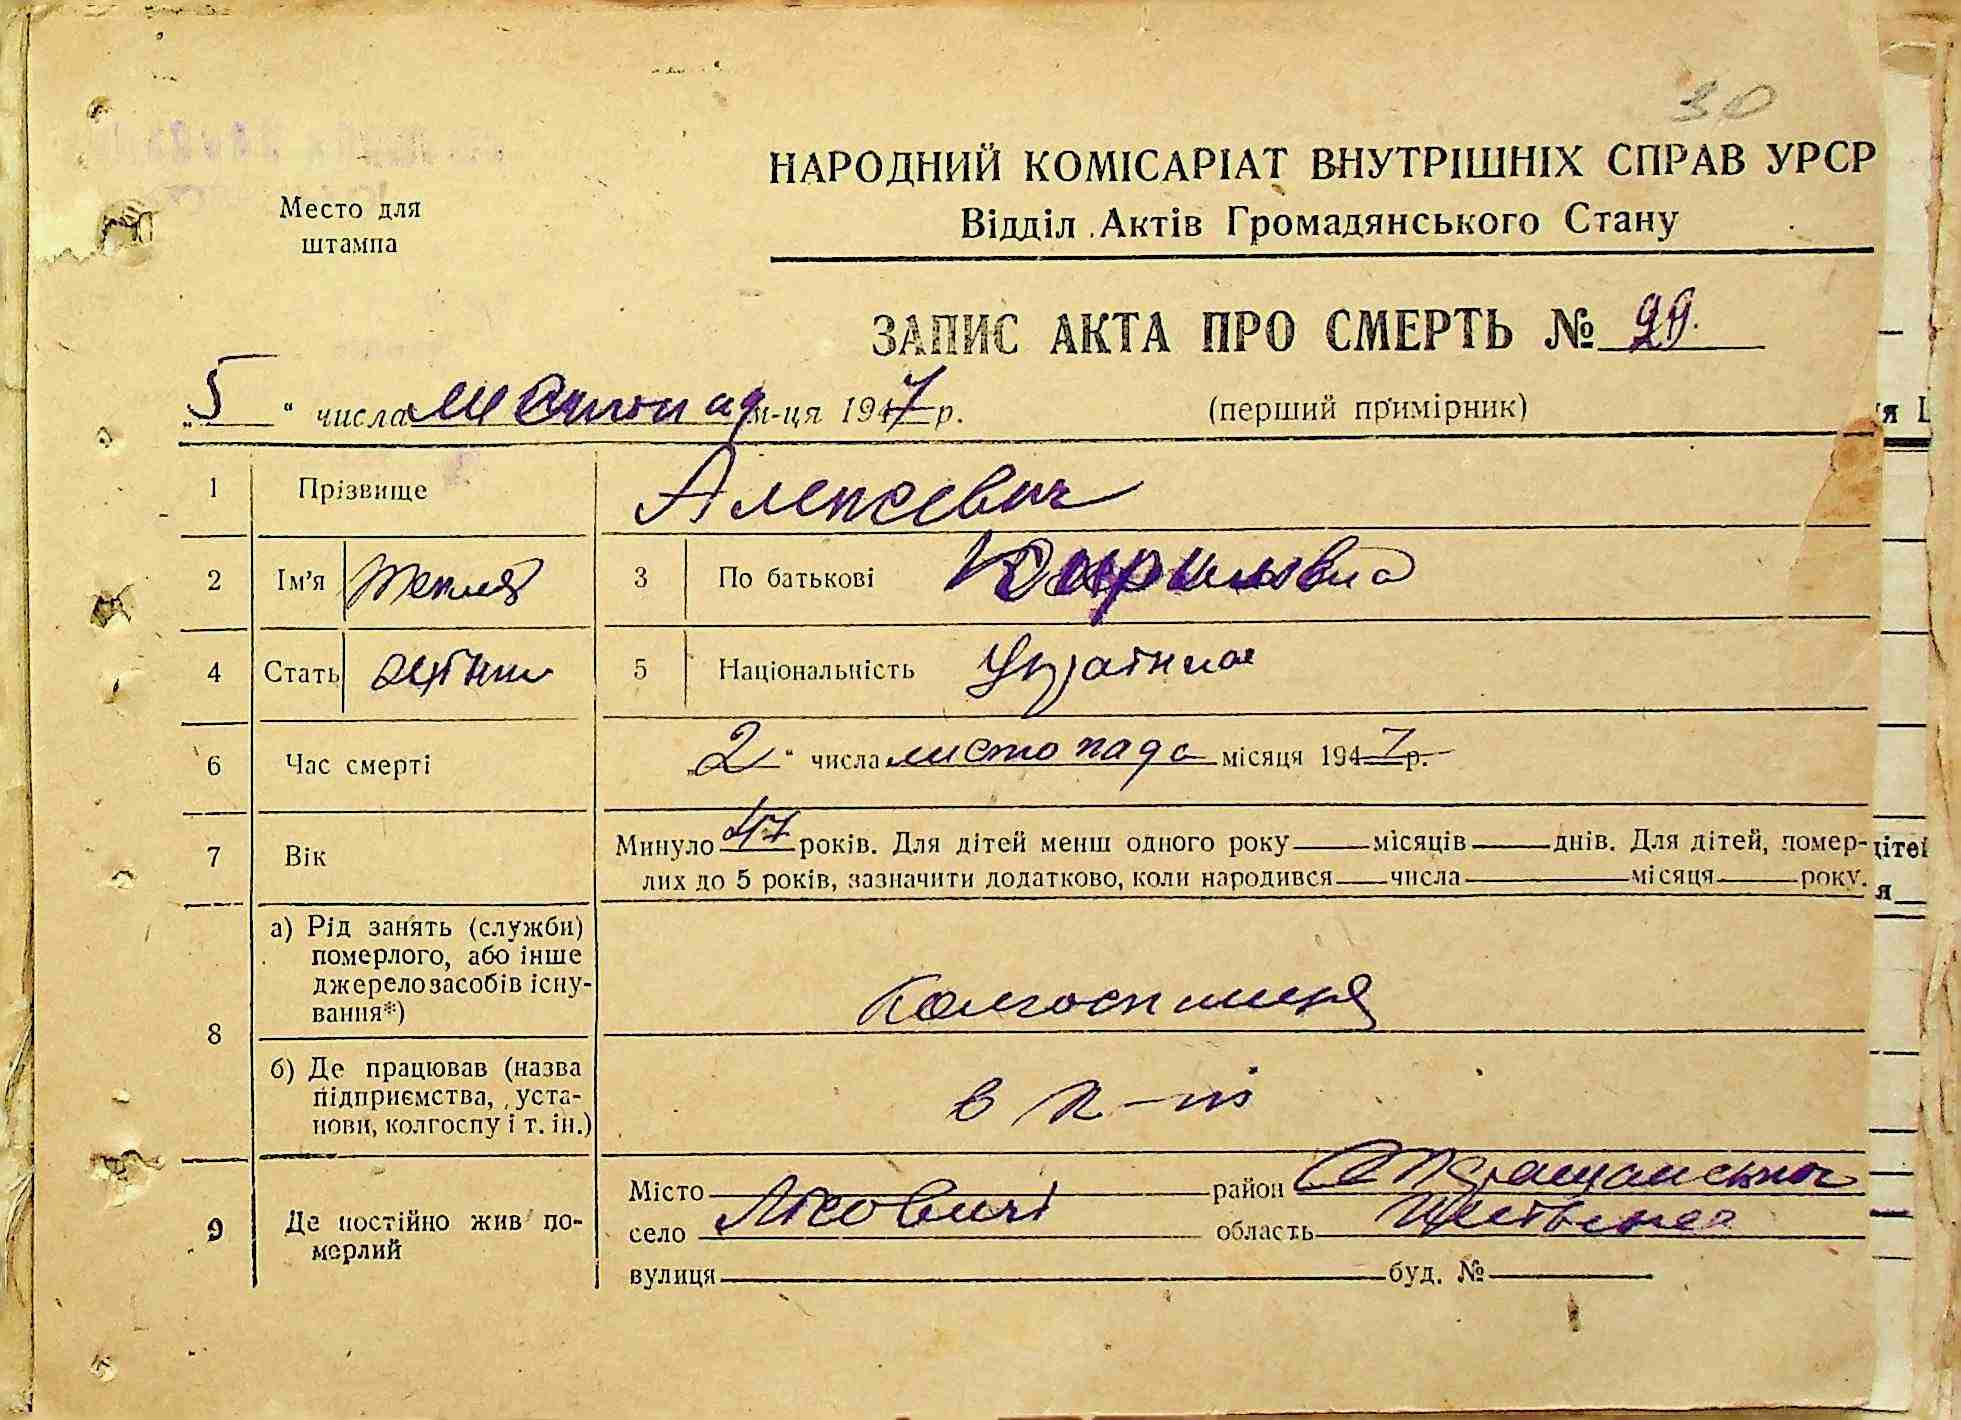 30
НАРОДНИЙ КОМІСАРІАТ ВНУТРІШНІХ СПРАВ УРСР
Відділ Актів Громадянського Стану
Место для
штампа
ЗАПИС АКТА ПРО СМЕРТЬ № 99.
„5“ числа листопад м-ця 1947 р.
(перший примірник)
1 Прізвище Алексевич
2 Ім'я 3 По батькові Кириловна
4 Стать 5 Національність Українка
6 Час смерті „2“ числа листопада місяця 1947 р.
7 Вік Минуло 47 років. Для дітей менш одного року місяців днів. Для дітей, помер-
лих до 5 років, зазначити додатково, коли народився числа місяця року.
8 а) Рід занять (служби)
померлого, або інше
джерело засобів існу-
вання*)
Колгоспниця
б) Де працював (назва
підприємства, уста-
нови, колгоспу і т. ін.)
в к-пі
9 Де постійно жив по-
мерлий
Місто район Таращанський
село Лісовичі область Київська
вулиця буд. №